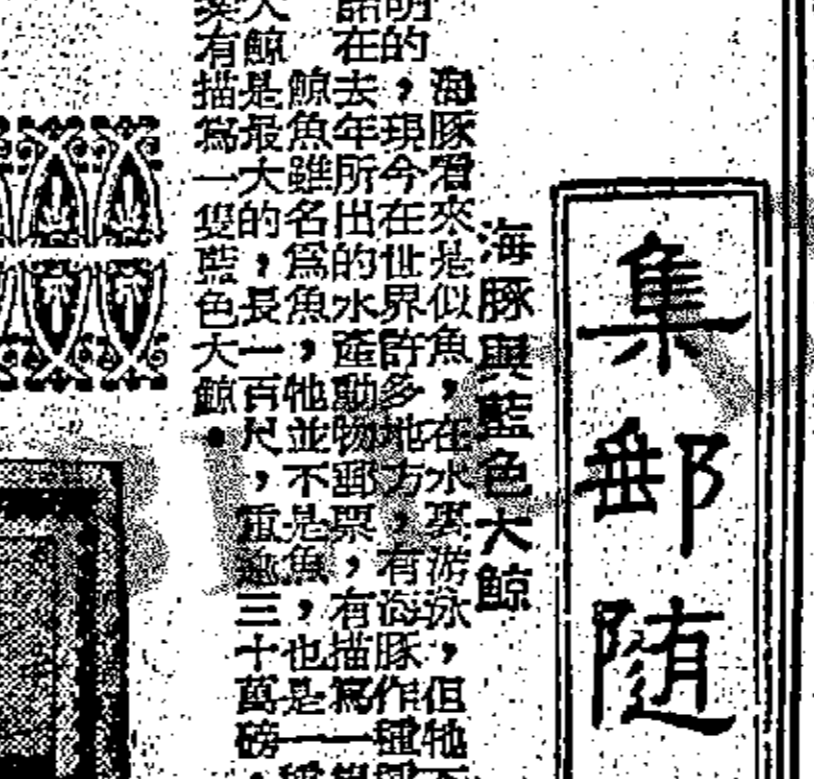 集郵隨
海豚與藍色大鯨
海豚看來是似魚，在水裏游泳，但牠
明的，現今在世界許多地方，有海豚作種
在去年所出的水產動物郵票，有描寫一
鯨魚雖名爲魚，牠並不是魚，也是一種
大鯨是最大的，長一百尺，重逾三十萬磅，
有描寫一隻藍色大鯨．